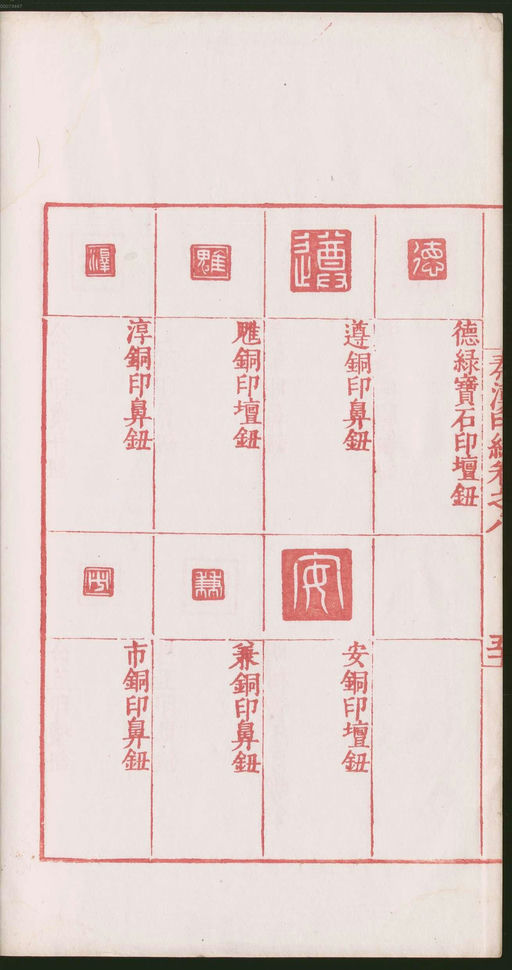 德
德綠寶石印壇鈕
遵
遵銅印鼻鈕
雕
雕銅印壇鈕
淳
淳銅印鼻鈕
安
安銅印壇鈕
兼
兼銅印鼻鈕
市
市銅印鼻鈕
00079447